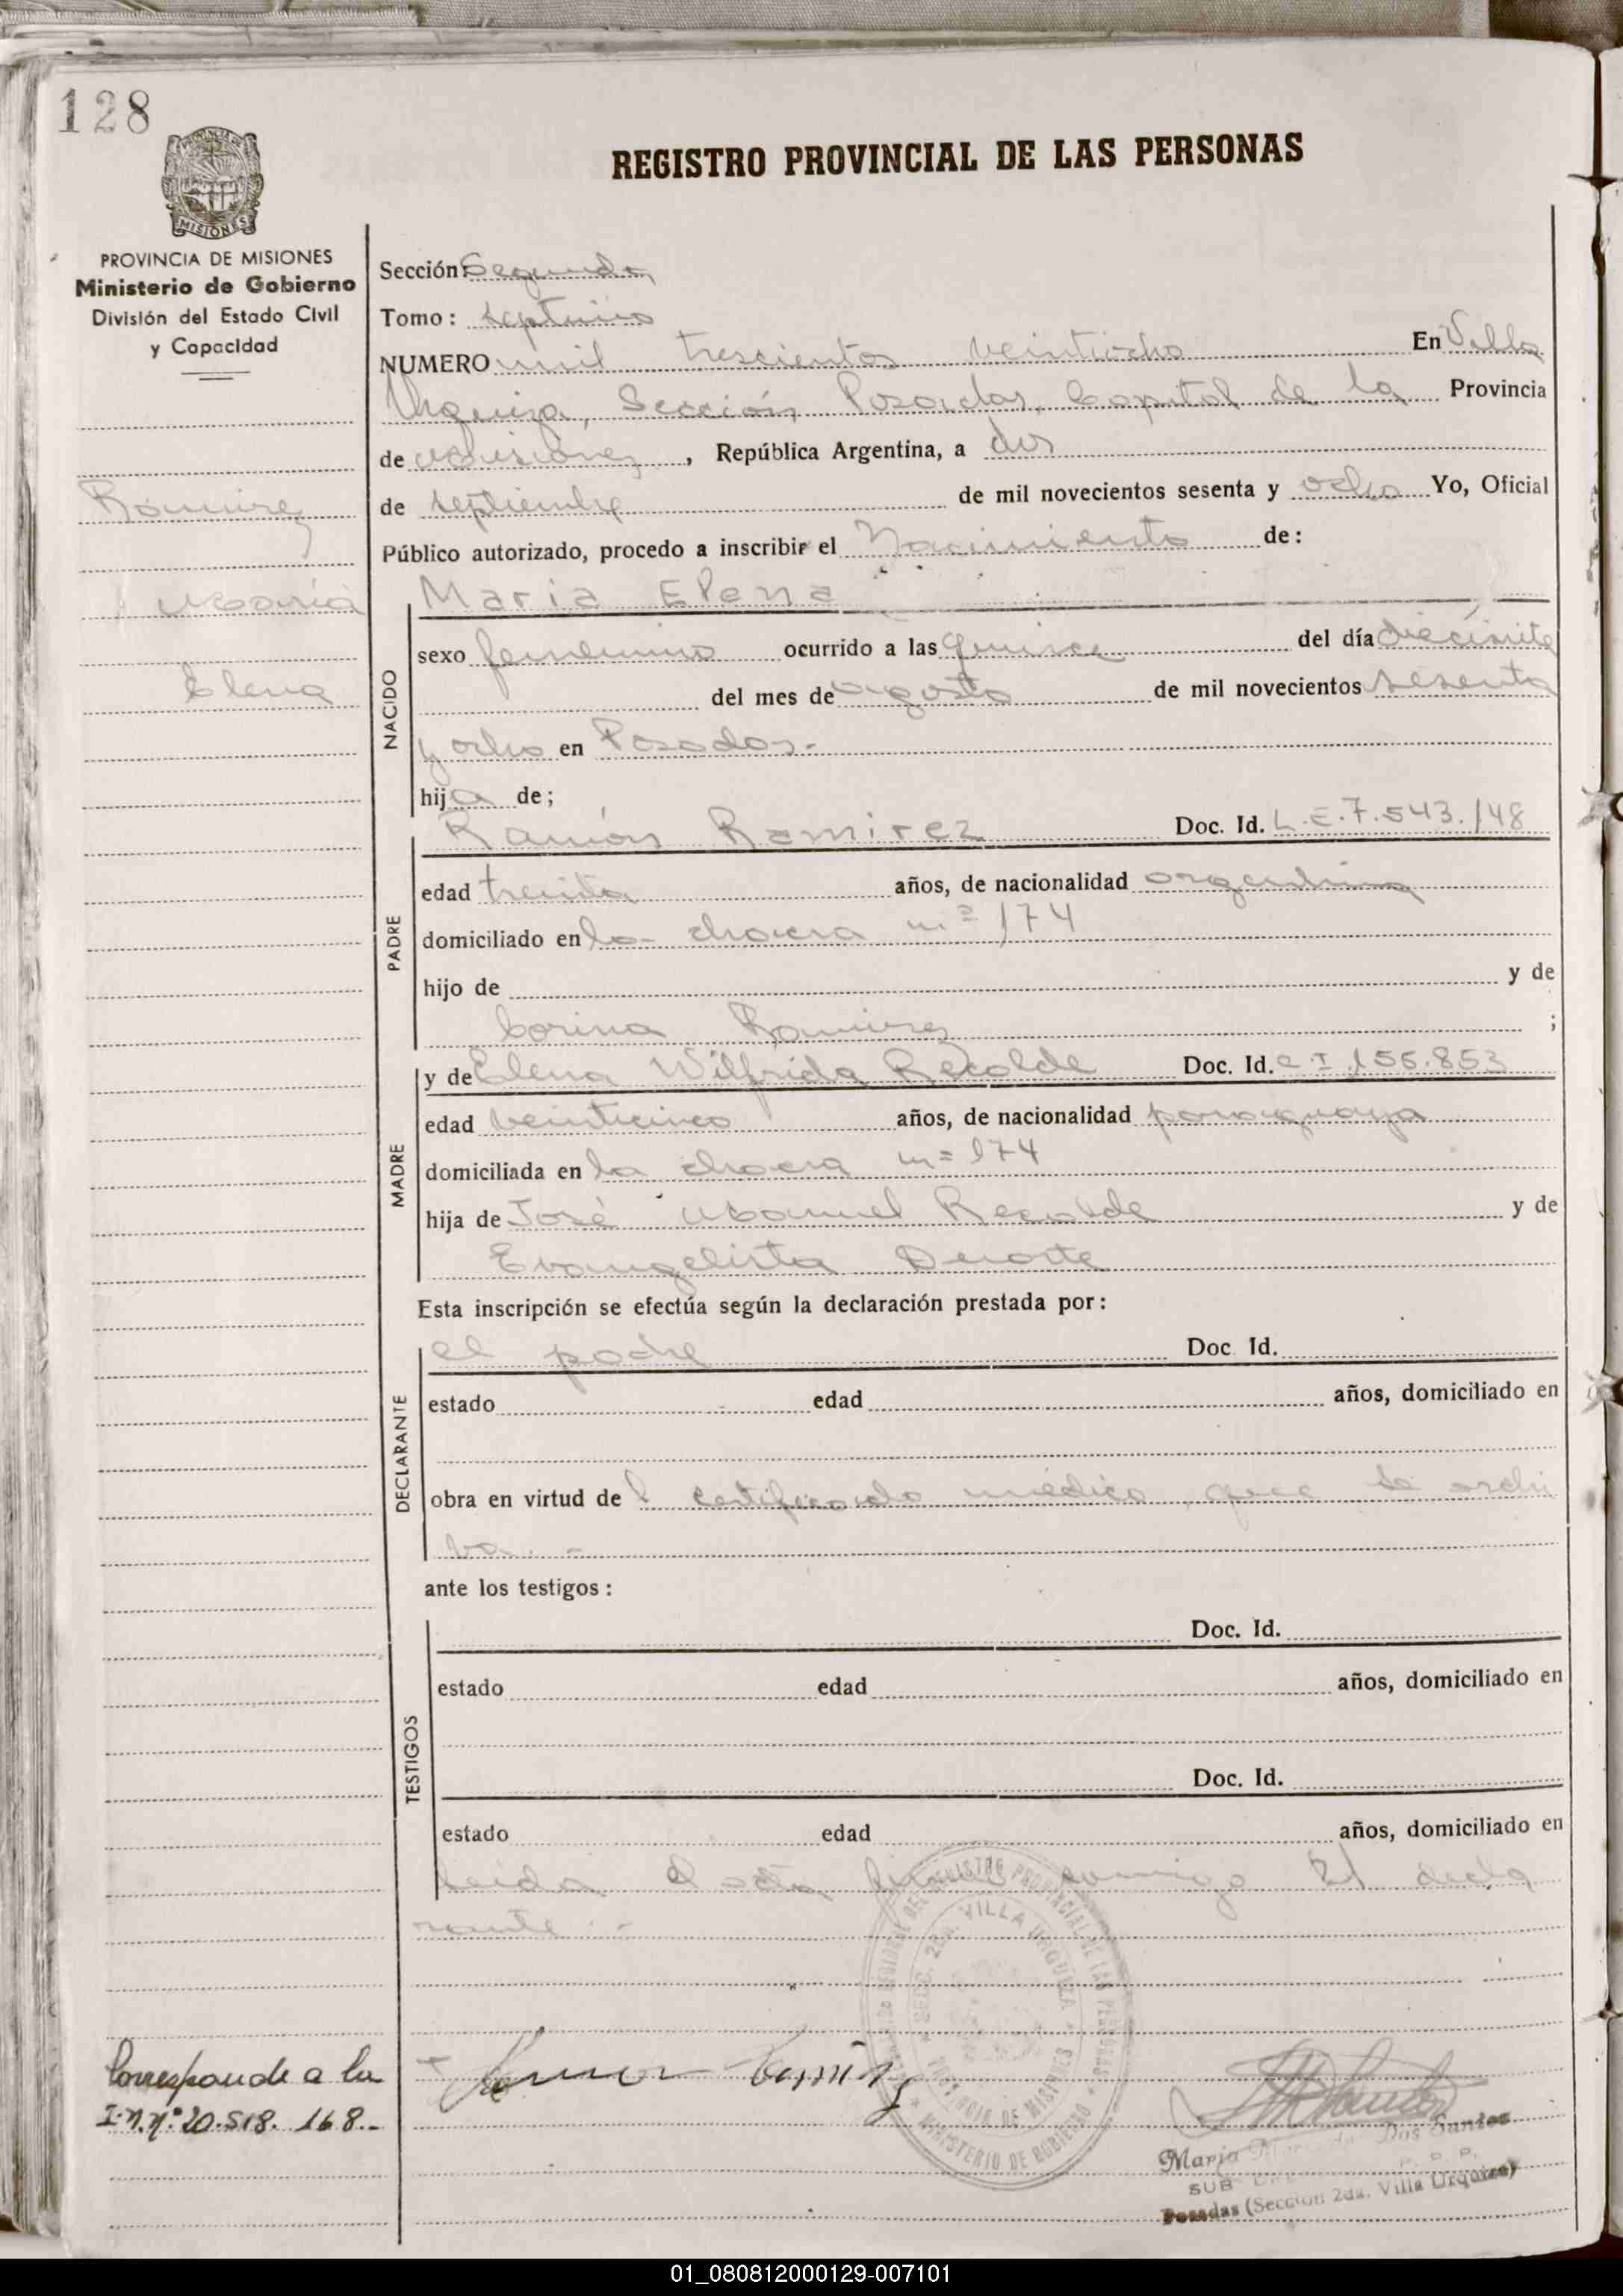 128
MISIONES
PROVINCIA DE MISIONES
Ministerio de Gobierno
División del Estado Civil
y Capacidad
REGISTRO PROVINCIAL DE LAS PERSONAS
Sección: Segunda
Tomo: septimo
NUMERO mil trescientos veintiocho En Villa
Urquiza, Sección, Posadas, Capital de la Provincia
de Misiones, República Argentina, a dos
de septiembre de mil novecientos sesenta y ocho Yo, Oficial
Público autorizado, procedo a inscribir el Nacimiento de:
Ramirez
María
Elena
NACIDO
Maria Elena
sexo femenino ocurrido a las quince del día
del mes de agosto de mil novecientos sesenta
y ocho en Posadas.-
hija de;
PADRE
Ramón Ramirez Doc. Id. L.E.7.543.148
edad treinta años, de nacionalidad argentina
domiciliado en la chacra nº 174
hijo de y de
Corina Ramirez ;
MADRE
y de Elena Wilfrida Recalde Doc. Id. C I 155.853
edad veinticinco años, de nacionalidad paraguaya
domiciliada en la chacra n= 174
hija de José Manuel Recalde y de
Evangelista
Esta inscripción se efectúa según la declaración prestada por:
DECLARANTE
el padre Doc. Id.
estado edad años, domiciliado en
obra en virtud del certificado médico, que se archi
va.-
ante los testigos:
TESTIGOS
Doc. Id.
estado edad años, domiciliado en
Doc. Id.
estado edad años, domiciliado en
Leída el acta firma conmigo el decla
rante.-
VILLA URQUIZA
MINISTERIO DE GOBIERNO
Corresponde a la
I.N.Nº 20.518.168.-
Ramon Ramirez
Maria Dos Santos
SUB
Posadas (Sección 2da. Villa Urquiza)
01_080812000129-007101